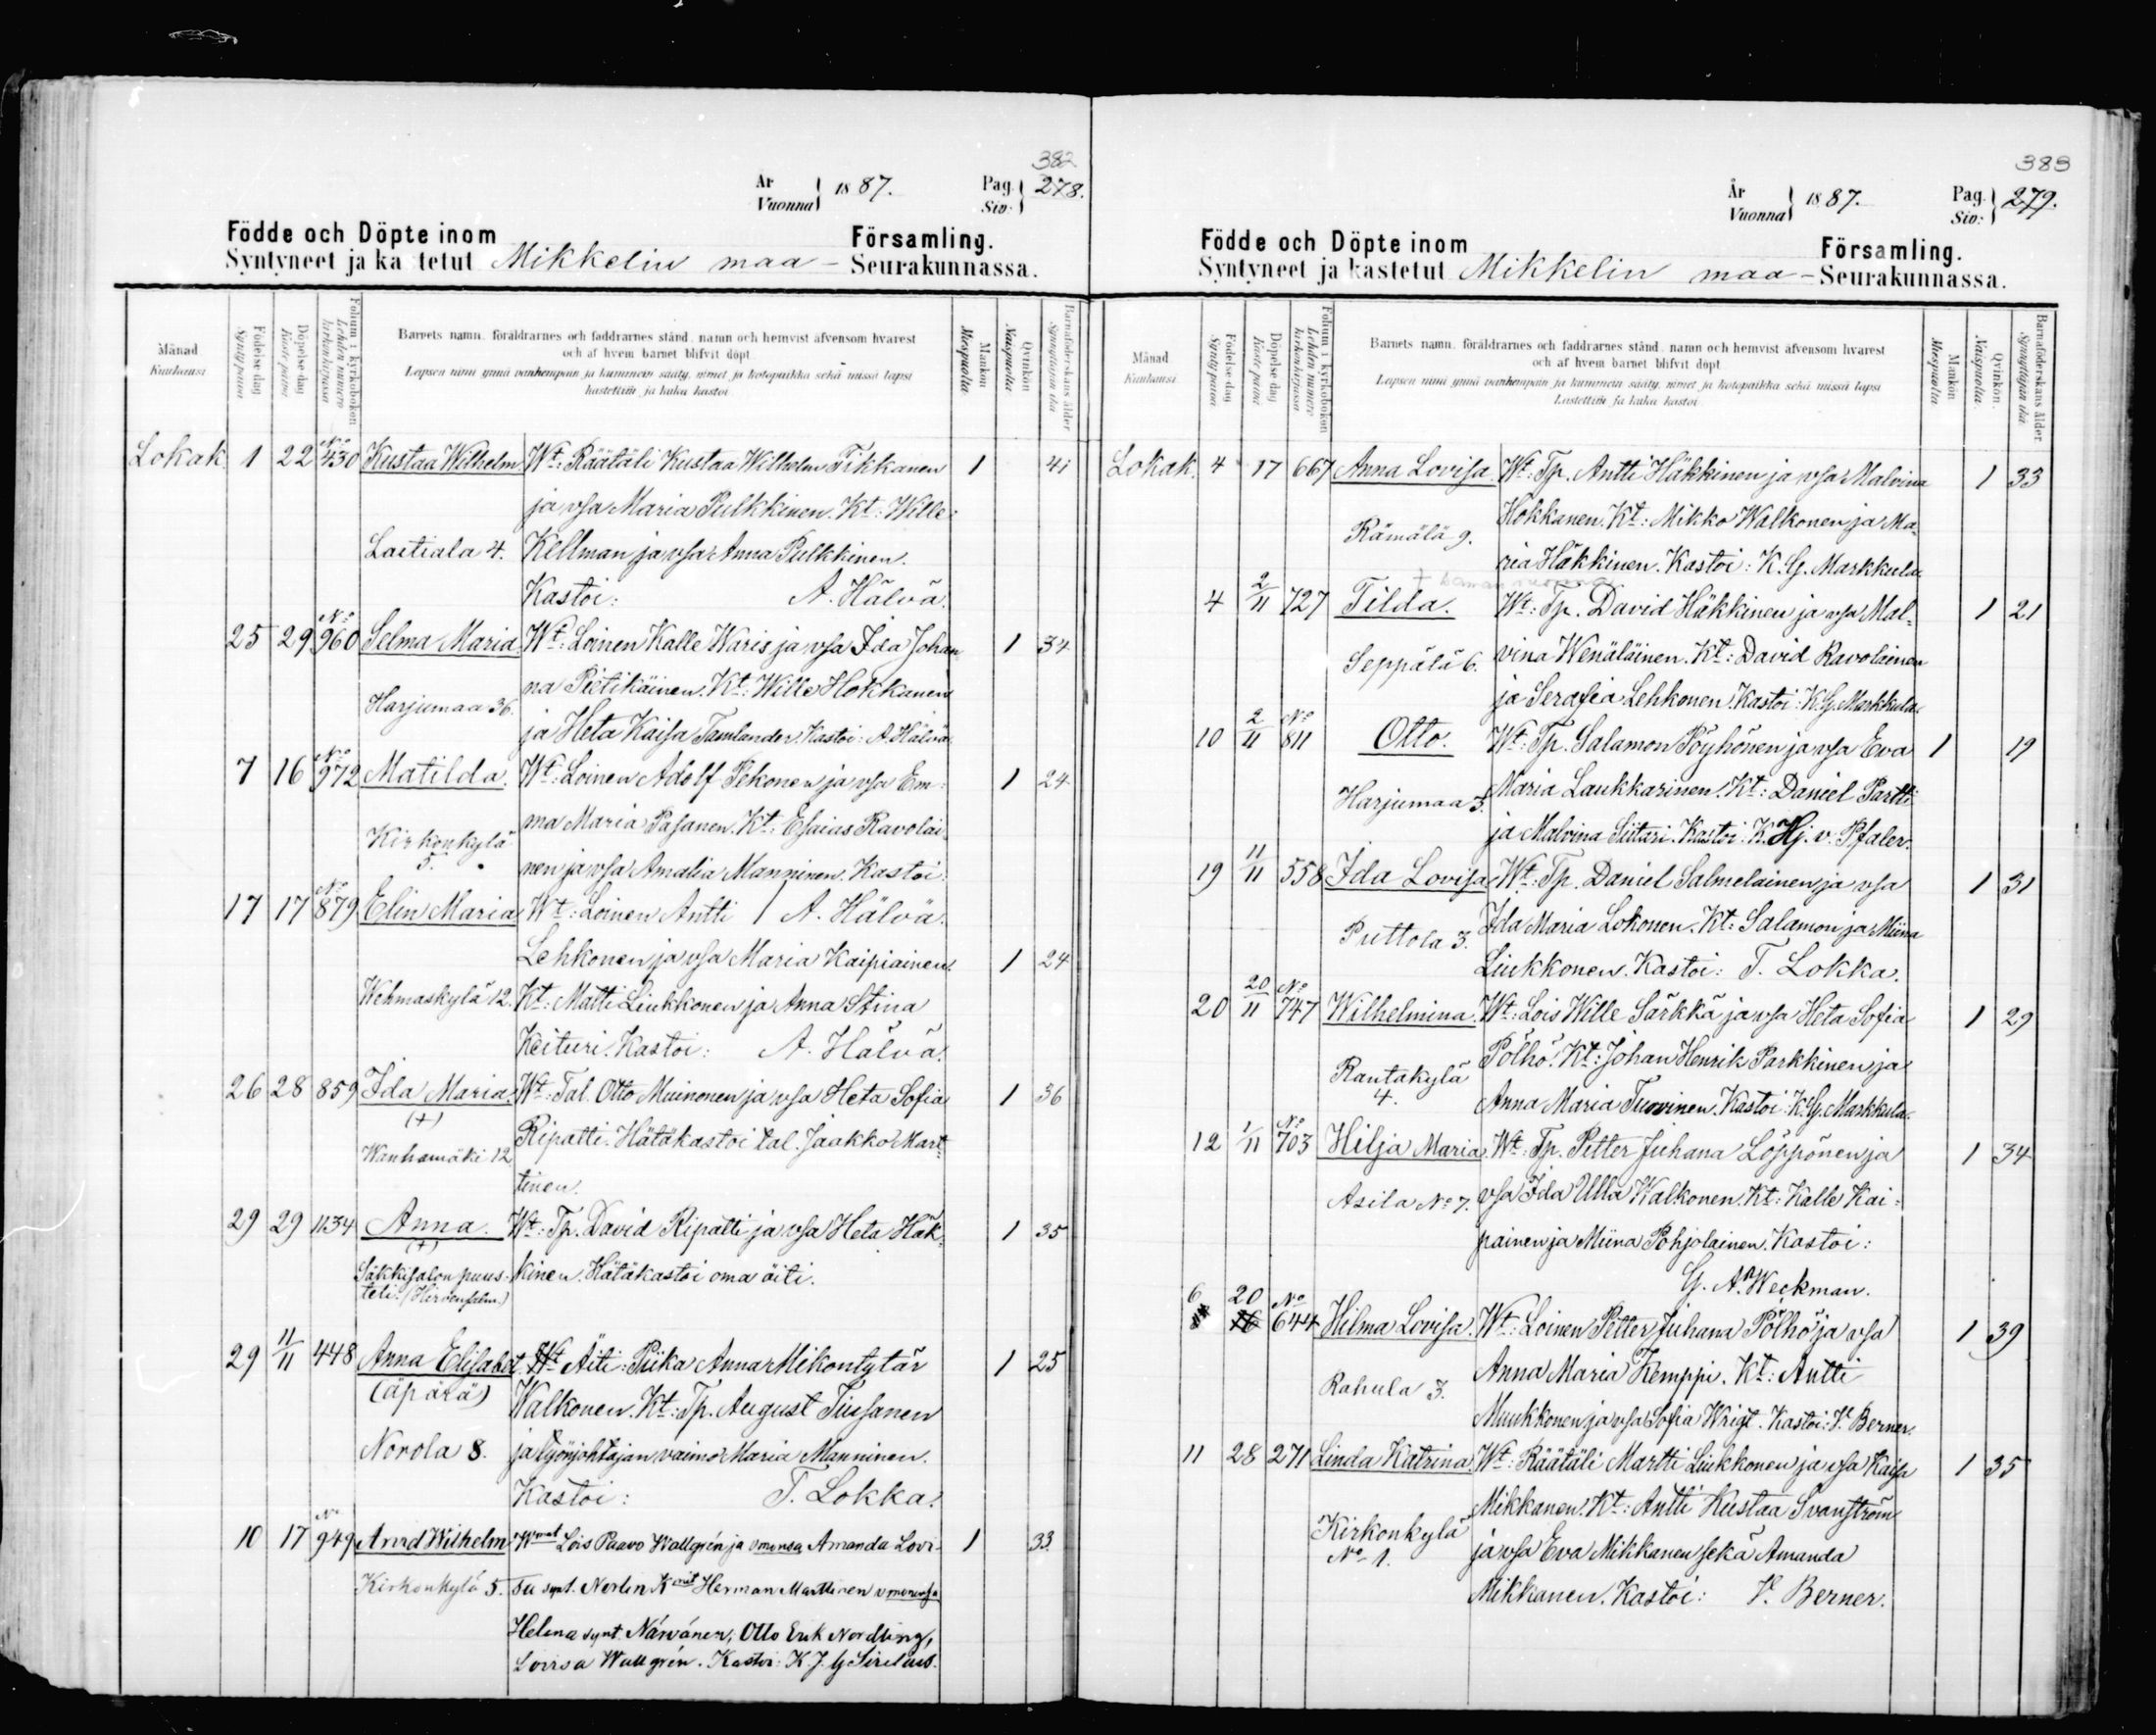 382
År
Vuonna 1887.
Pag.
Siv. 278.
Födde och Döpte inom Församling.
Syntyneet ja ka tetut Mikkelin maa- Seurakunnassa.
Månad
Kuukausi
Födelse dag
Syntypäivä
Döpelse dag
Kaste päivä
Folium i kyrkoboken
Lehden numero kirkonkirjassa
Barnets namn, föräldrarnes och faddrarnes stånd, namn och hemvist äfvensom hvarest
och af hvem barnet blifvit döpt
Lapsen nimi ynnä vanhempain ja kummein sääty, nimet ja kotopaikka sekä missä lapsi
kastettiin ja kuka kastoi
Mankön
Miespuolta
Qvinkön
Naispuolta
Barnaföderskans ålder
Synnyttäjän ikä
Lokak. 1 22 No 430 Kustaa Wilhelm Wt: Räätäli Kustaa Wilhelm Tikkanen 1 41
ja vsa Maria Pulkkinen. Kt: Wille
Laitiala 4. Kellman ja vsa Anna Pulkkinen.
Kastoi: A. Hälvä.
25 29 No 960 Selma Maria Wt: Loinen Kalle Waris ja vsa Ida Johan 1 34
na Pietikäinen. Kt: Wille Hokkanen
Harjumaa 36. ja Heta Kaisa Tamlander. Kastoi: A. Hälvä.
7 16 No 972 Matilda. Wt: Loinen Adolf Pekonen ja vsa Em- 1 24
ma Maria Pasanen. Kt: Esaias Ravolai
Kirkonkylä
5. nen ja vsa Amalia Manninen. Kastoi
17 17 No 879 Elin Maria Wt: Loinen Antti / A. Hälvä.
Lehkonen ja vsa Maria Kaipiainen. 1 24
Wehmaskylä 12. Kt: Matti Liukkonen ja Anna Stina
Keituri. Kastoi: A. Hälvä.
26 28 859 Ida Maria. Wt: Tal. Otto Muinonen ja vsa Heta Sofia 1 36
(+)
Ripatti. Hätäkastoi tal. Jaakko Mart-
Wanhamäki 12
tinen.
29 29 1134 Anna. Wt: Tp. David Ripatti ja vsa Heta Häk- 1 35
(+)
Säkkisalon puus- kinen. Hätäkastoi oma äiti.
teli. (Hirvensalm.)
29 11/11 448 Anna Elisabet. Wt Äiti: Piika Anna Mikontytär 1 25
(äpärä) Walkonen. Kt: Tp. August Tiusanen
Norola 8. ja työnjohtajan vaimo Maria Manninen.
Kastoi: T. Lokka.
10 17 No 949 Arvid Wilhelm Wmat Lois Paavo Wallgrén ja vmonsa Amanda Lovi- 1 33
Kirkonkylä 5. sa synt. Norlin Kmit Herman Marttinen vmonensa
Helena synt. Närvänen, Otto Erik Nordling,
Lovisa Wallgrén. Kastoi: K. J. G Sirelius.
383
År
Vuonna 1887.
Pag.
Siv: 279.
Födde och Döpte inom Församling.
Syntyneet ja kastetut Mikkelin maa- Seurakunnassa.
Månad
Kuukausi
Födelse dag
Syntypäivä
Döpelse dag
Kaste päivä
Folium i kyrkoboken
Lehden numero kirkonkirjassa
Barnets namn, föräldrarnes och faddrarnes stånd, namn och hemvist äfvensom hvarest
och af hvem barnet blifvit döpt
Lapsen nimi ynnä vanhempain ja kummein sääty, nimet ja kotopaikka sekä missä lapsi
kastettiin ja kuka kastoi
Mankön
Miespuolta
Qvinkön.
Naispuolta.
Barnaföderskans ålder.
Synnyttäjän ikä
Lokak. 4 17 667 Anna Lovisa. Wt: Tp. Antti Häkkinen ja vsa Malvina 1 33
Hokkanen. Kt: Mikko Walkonen ja Ma-
Rämälä 9.
ria Häkkinen. Kastoi: K. G. Markkula.
4 2/11 727 Tilda. Wt: Tp. David Häkkinen ja vsa Mal- 1 21
Seppälä 6. vina Wenäläinen. Kt: David Ravolainen
ja Serafia Lehkonen. Kastoi: K. G. Markkula.
10 2/11 No 811 Otto. Wt: Tp. Salamon Pöyhönen ja vsa Eva 1 19
Harjumaa 3. Maria Laukkarinen. Kt: Daniel Partti
ja Malvina Siitari. Kastoi: K. Hj. v. Pfaler.
19 11/11 558 Ida Lovisa Wt: Tp. Daniel Salmelainen ja vsa 1 31
Puttola 3. Ida Maria Lokonen. Kt: Salamon ja Miina
Liukkonen. Kastoi: T. Lokka.
20 20/11 No 747 Wilhelmina. Wt: Lois Wille Särkkä ja vsa Heta Sofia 1 29
Rantakylä
4. Pölhö. Kt: Johan Henrik Parkkinen ja
Anna Maria Tuovinen. Kastoi: K. G. Markkula.
12 1/11 No 703 Hilja Maria. Wt: Tp. Petter Juhana Löppönen ja 1 34
Asila No 7. vsa Ida Ulla Walkonen. Kt: Kalle Kai-
painen ja Miina Pohjolainen. Kastoi:
G. A. Weckman.
6 20 No 644 Hilma Lovisa. Wt: Loinen Petter Juhana Pölhö ja vsa 1 39
Rahula 3. Anna Maria Kemppi. Kt: Antti
Muukkonen ja vsa Sofia Wrigt. Kastoi: V. Berner.
11 28 271 Linda Katrina. Wt: Räätäli Martti Liukkonen ja vsa Kaisa 1 35
Mikkanen. Kt: Antti Kustaa Svanström
Kirkonkylä
No 1. ja vsa Eva Mikkanen sekä Amanda
Mikkanen. Kastoi: V. Berner.